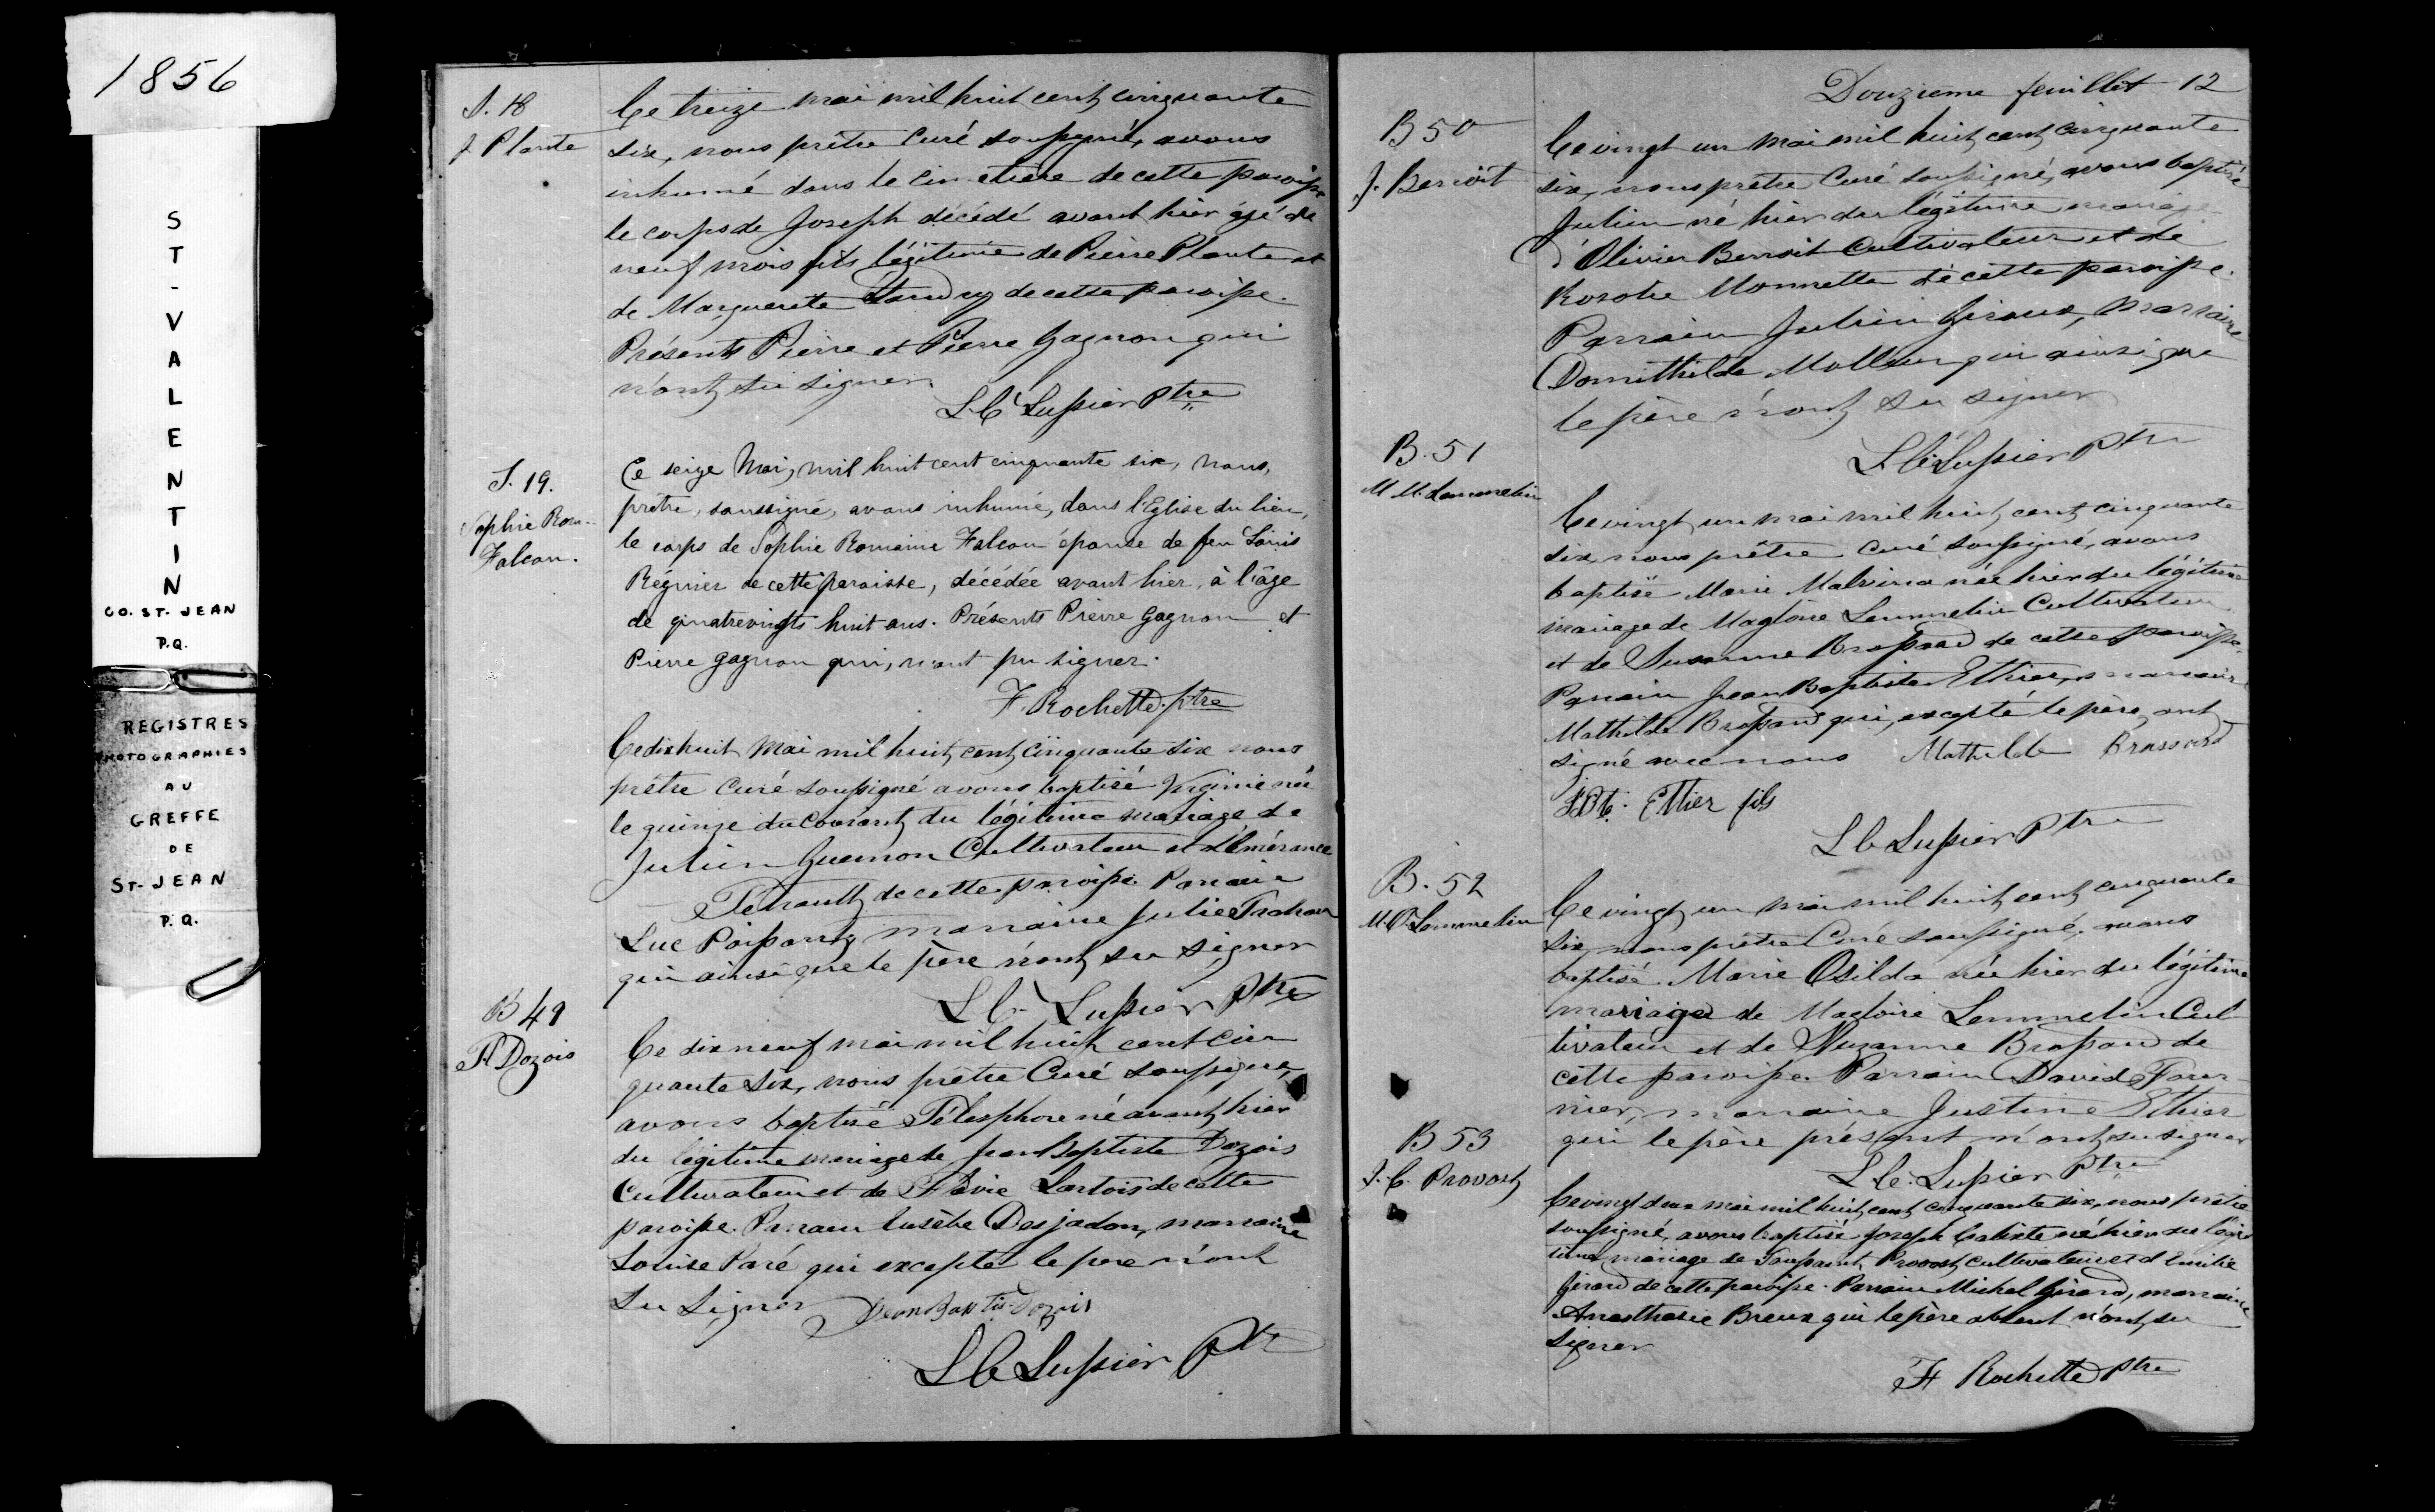 1856
ST-VALENTIN
CO. ST. JEAN
P.Q.
REGISTRES
PHOTOGRAPHIES
AU
GREFFE
DE
ST-JEAN
P.Q.
S. 18
J. Plante
Ce treize mai mil huit cent cinquante
six, nous prêtre Curé soussigné, avons
inhumé dans le cimetière de cette paroisse
le corps de Joseph décédé avant hier âgé de
neuf mois fils légitime de Pierre Plante et
de Marguerite Landry de cette paroisse.
Présents Pierre et Pierre Gagnon qui
n'ont su signer
L.C. Lussier Ptre
S. 19.
Sophie Rom.
Falcon.
Ce seize Mai, mil huit cent cinquante six, nous,
prêtre, soussigné, avons inhumé, dans l'Eglise du lieu,
le corps de Sophie Romaine Falcon épouse de feu Louis
Régnier de cette paroisse, décédée avant hier, à l'âge
de quatrevingts huit ans. Présents Pierre Gagnon et
Pierre Gagnon qui, n'ont pu signer.
F. Rochette ptre
Ce dix huit Mai mil huit cent cinquante six nous
prêtre Curé soussigné avons baptisé Virginie née
le quinze du Courant du légitime mariage de
Julien Guemon Cultivateur et d'Emérance
Tetrault de cette paroisse Parrain
Luc Poissant marraine Julie Trahan
qui ainsi que le père n'ont su signer
L.C. Lussier Ptre
B 49
T. Dozois
Ce dix neuf mai mil huit cent cin
quante six, nous prêtre Curé soussigné,
avons baptisé Télesphore né avant hier
du légitime mariage de Jean Baptiste Dozois
Cultivateur et de Flavie Lartois de cette
paroisse. Parrain Eusèbe Desjadon, marraine
Louise Paré qui excepté le pere n'ont
su signer Jean Baptis Dozois
L C Lussier Ptr
Douzieme feuillet 12
B 50
J. Benoit
Ce vingt un Mai mil huit cent cinquante
six, nous prêtre Curé soussigné, avons baptisé
Julien né hier du légitime mariage
d'Olivier Benoit Cultivateur et de
Rosalie Monnette de cette paroisse.
Parrain Julien Giroux, marraine
Domithilde Molleur qui ainsi que
le père n'ont su signer
L.C. Lussier Ptre
B. 51
M. M. Lemmelin
Ce vingt un mai mil huit cent cinquante
six, nous prêtre Curé soussigné, avons
baptisé Marie Malvina née hier du légitime
mariage de Magloire Lemmelin Cultivateur
et de Susanne Brossard de cette paroisse.
Parrain Jean Baptiste Ethier, marraine
Mathilde Brossard qui, excepté le père, ont
signé avec nous Mathilde Brossard
J.Bte. Ethier fils
L C Lussier Ptre
B. 52
M. O. Lemmelin
Ce vingt un mai mil huit cent cinquante
six, nous prêtre Curé soussigné, avons
baptisé Marie Osilda née hier du légitime
mariage de Magloire Lemmelin Cul
tivateur et de Suzanne Brossard de
cette paroisse. Parrain David Four-
nier, marraine Justine Ethier
qui le père présent n'ont su signer
L.C. Lussier Ptre
B 53
J. C. Provost
Ce vingt deux mai mil huit cent cinquante six, nous prêtre
soussigné, avons baptisé Joseph Calixte né hier du légi
time mariage de Toussaint Provost Cultivateur et d'Emilie
Girard de cette paroisse. Parrain Michel Girard, marraine
Anasthasie Breux qui le père absent n'ont su
signer
F Rochette Ptre